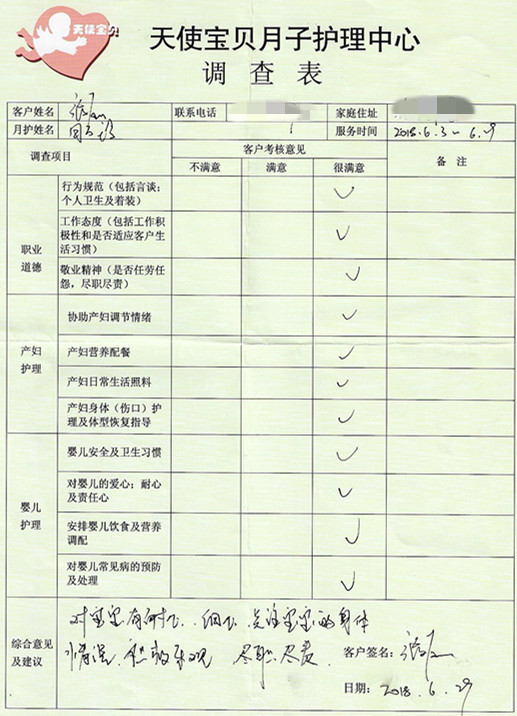 天使宝贝
天使宝贝月子护理中心
调查表
客户姓名 联系电话 家庭住址
月护姓名 服务时间 2018.6.3~6.29
调查项目 客户考核意见 备注
不满意 满意 很满意
职业道德
行为规范（包括言谈；
个人卫生及着装）
工作态度（包括工作积
极性和是否适应客户生
活习惯）
敬业精神（是否任劳任
怨，尽职尽责）
产妇护理
协助产妇调节情绪
产妇营养配餐
产妇日常生活照料
产妇身体（伤口）护
理及体型恢复指导
婴儿护理
婴儿安全及卫生习惯
对婴儿的爱心；耐心
及责任心
安排婴儿饮食及营养
调配
对婴儿常见病的预防
及处理
综合意见
及建议
对宝宝有耐心、细心 关注宝宝的身体
情况、积极乐观 尽职尽责
客户签名：
日期：2018.6.29